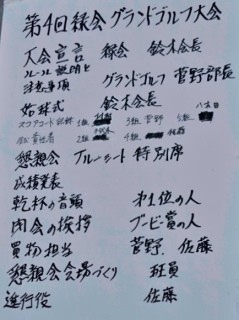 第4回緑会グランドゴルフ大会
大会宣言 緑会 鈴木会長
ルール説明と
注意事項 グランドゴルフ 菅野部長
始球式 鈴木会長
スコアコード記録 1組 3組 菅野 5組
2組 4組
懇親会 ブルーシート特別席
成績発表
乾杯の音頭 オ1位の人
閉会の挨拶 ブービー賞の人
買物担当 菅野、佐藤
懇親会会場づくり 班員
進行役 佐藤